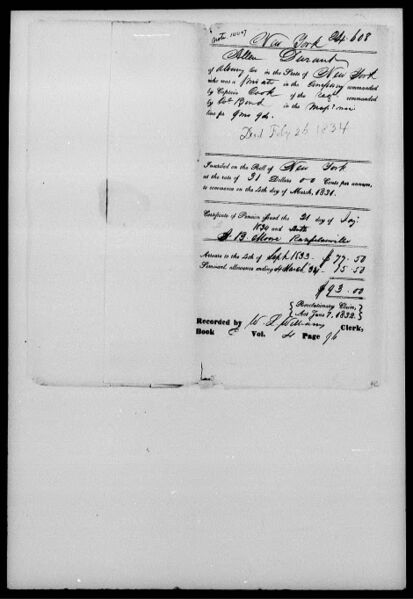 New York
Allen Durant
of Albany Co in the State of New York
who was a Private in the Company commanded
by Captain Cook of the Regt commanded
by Col. in the
line for 9 mo
Died Feby 26 1834
Inscribed on the Roll of New York
at the rate of 31 Dollars 00 Cents per annum,
to commence on the 4th day of March, 1831.
Certificate of Pension issued the 21 day of
and
B. Moore Rensselaerville
Arrears to the 4th of Sept 1833 $77.50
Semi-anl. allowance ending 4 March 34 15.50
$93.00
Revolutionary Claim,
Act June 7, 1832.
Recorded by Clerk,
Book Vol. 4 Page 96